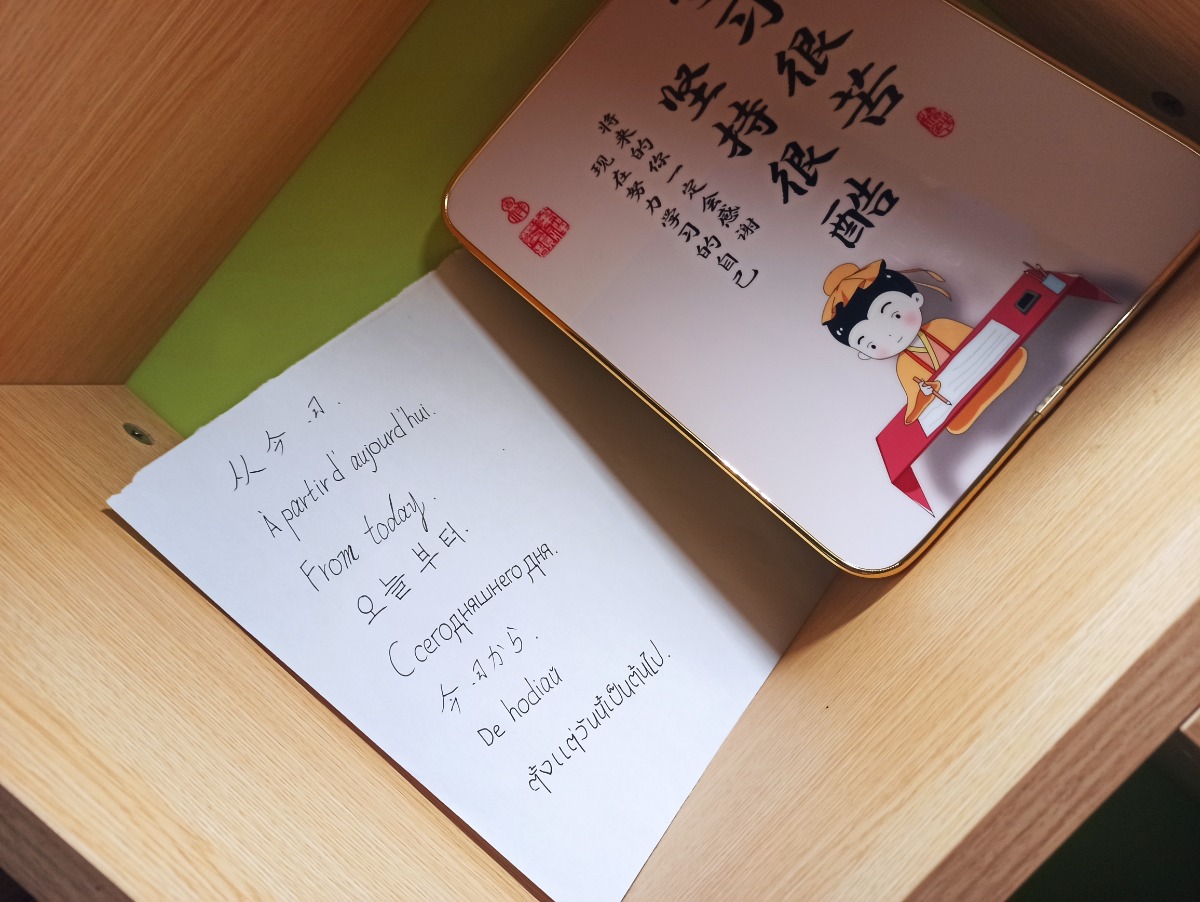 习很苦
坚持很酷
将来的你一定会感谢
现在努力学习的自己
从今日.
À partir d'aujourd'hui.
From today.
오늘부터.
С сегодняшнего дня.
今日から.
De hodiaŭ
ตั้งแต่วันนี้เป็นต้นไป.